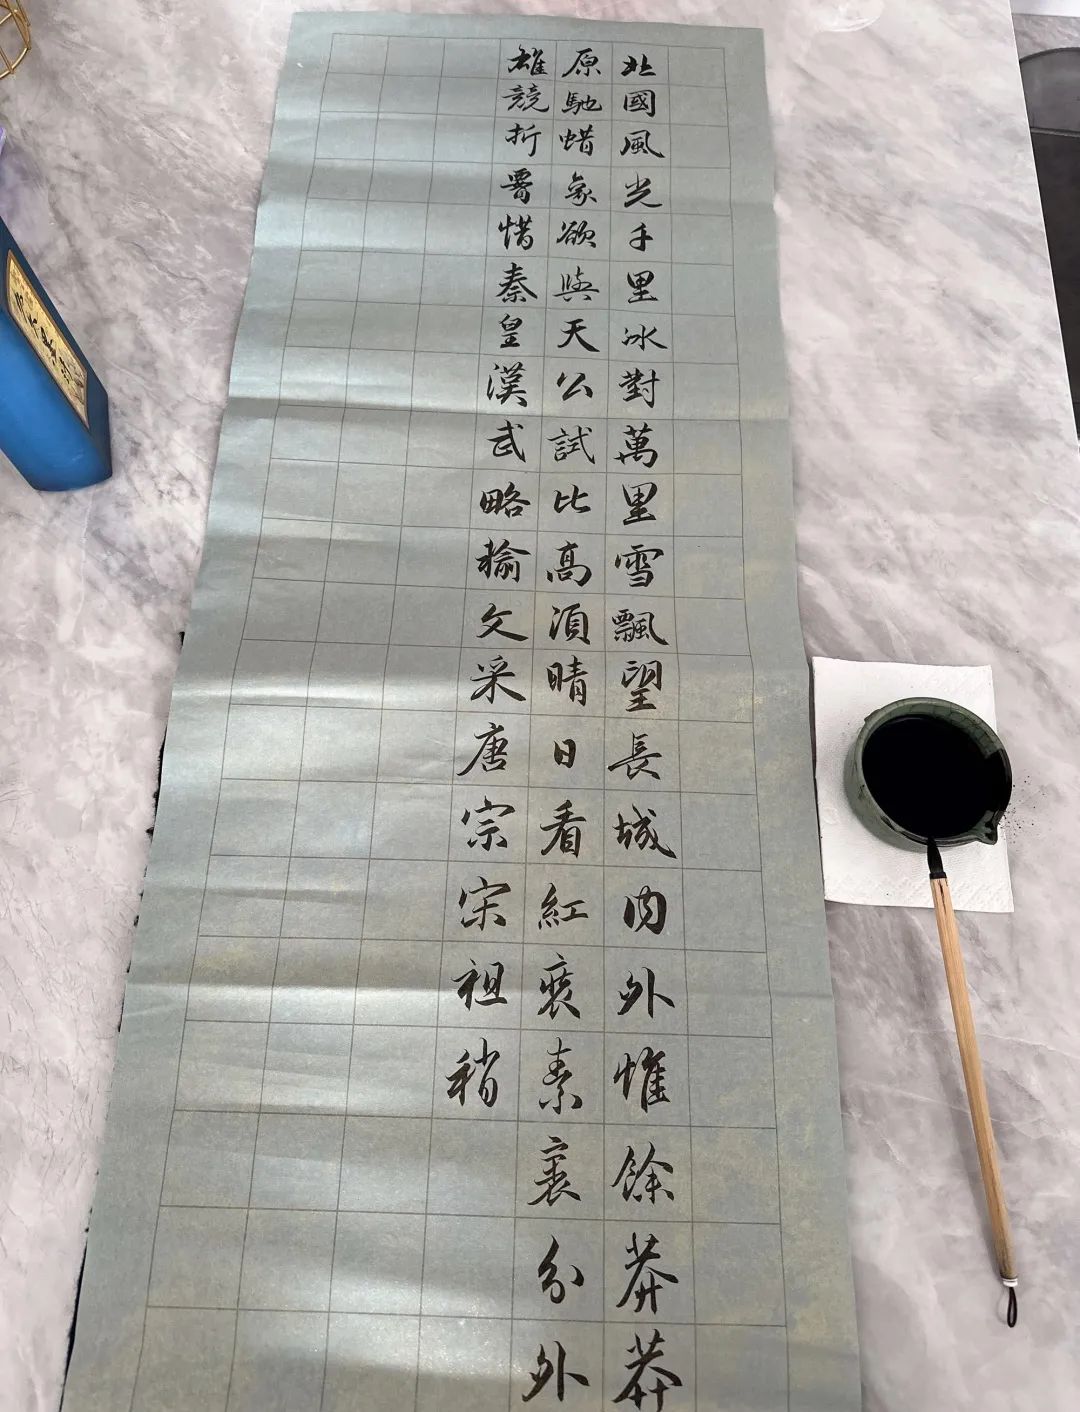 北國風光千里冰對萬里雪飄望長城內外惟餘莽莽
原馳蜡象欲與天公試比高湏晴日看紅裝素裹分外
雄競折腰惜秦皇漢武略輸文采唐宗宋祖稍